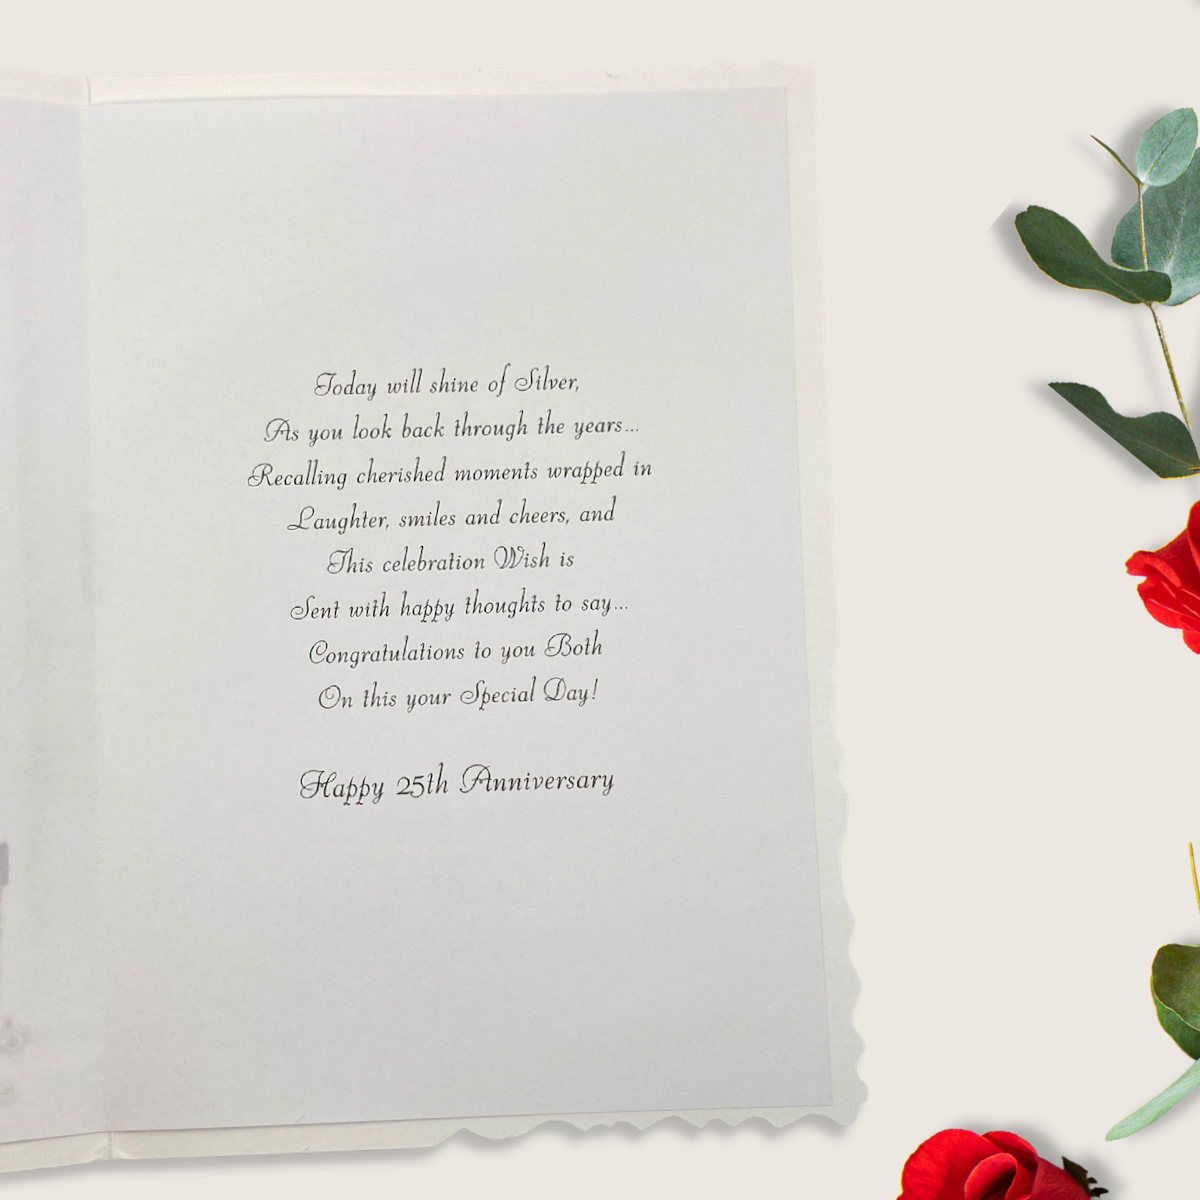 Today will shine of Silver,
As you look back through the years...
Recalling cherished moments wrapped in
Laughter, smiles and cheers, and
This celebration Wish is
Sent with happy thoughts to say...
Congratulations to you Both
On this your Special Day!
Happy 25th Anniversary